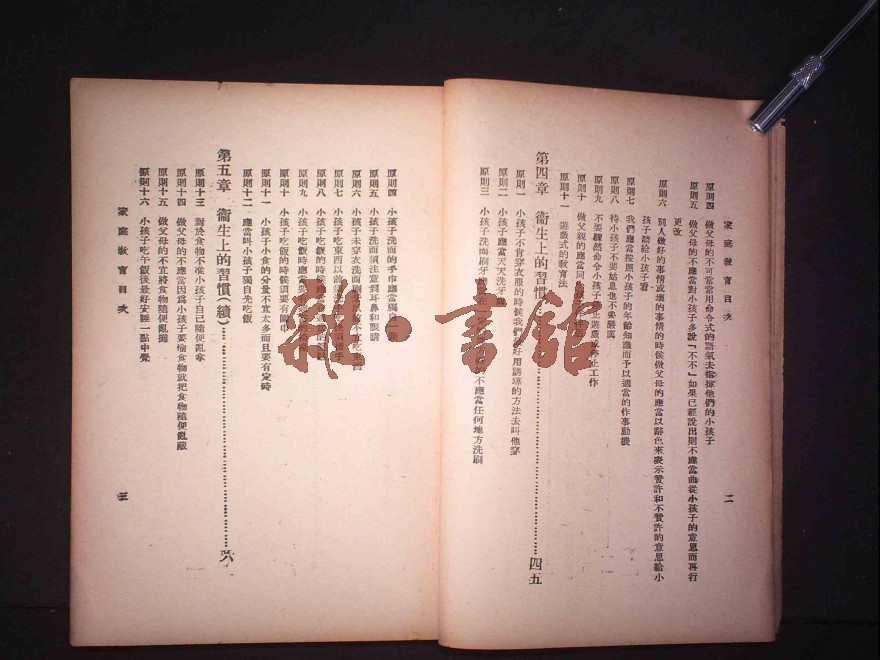 家庭教育目次
二
原則四 做父母的不可常常用命令式的語氣去指揮他們的小孩子
原則五 做父母的不應當對小孩子多說「不不」如果已經說出則不應當曲從小孩子的意思而再行
更改
原則六 別人做好的事情或壞的事情的時候做父母的應當以辭色來表示贊許和不贊許的意思給小
孩子聽給小孩子看
原則七 我們應當按照小孩子的年齡知識而予以適當的作事動機
原則八 待小孩子不要姑息也不要嚴厲
原則九 不要驟然命令小孩子停止遊戲或停止工作
原則十 做父親的應當同小孩子
原則十一 遊戲式的教育法
第四章 衞生上的習慣 四五
原則一 小孩子不肯穿衣服的時候我們最好用誘導的方法去叫他穿
原則二 小孩子應當天天洗牙齒
原則三 小孩子洗面刷牙應當在一定 不應當任何地方洗刷
原則四 小孩子洗面的手巾應當獨自
原則五 小孩子洗面須注意到耳鼻和眼睛
原則六 小孩子未穿衣洗面刷牙以前不宜吃東西
原則七 小孩子吃東西以前
原則八 小孩子吃飯的時候應當
原則九 小孩子吃飯時應當要有
原則十 小孩子吃飯的時候須要有圍巾
原則十一 小孩子小食的分量不宜太多而且要有定時
原則十二 應當叫小孩子獨自先吃飯
第五章 衞生上的習慣（續） 六
原則十三 對於食物不准小孩子自己隨便亂拿
原則十四 做父母的不應當因爲小孩子要偷食物就把食物隨便亂藏
原則十五 做父母的不宜將食物隨便亂擺
原則十六 小孩子吃午飯後最好安睡一點中覺
家庭敎育目次
三
雜·書館